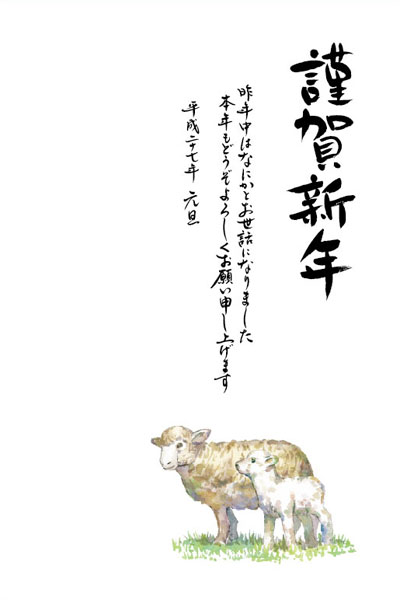 謹賀新年
昨年中はなにかとお世話になりました
本年もどうぞよろしくお願い申し上げます
平成二十七年 元旦